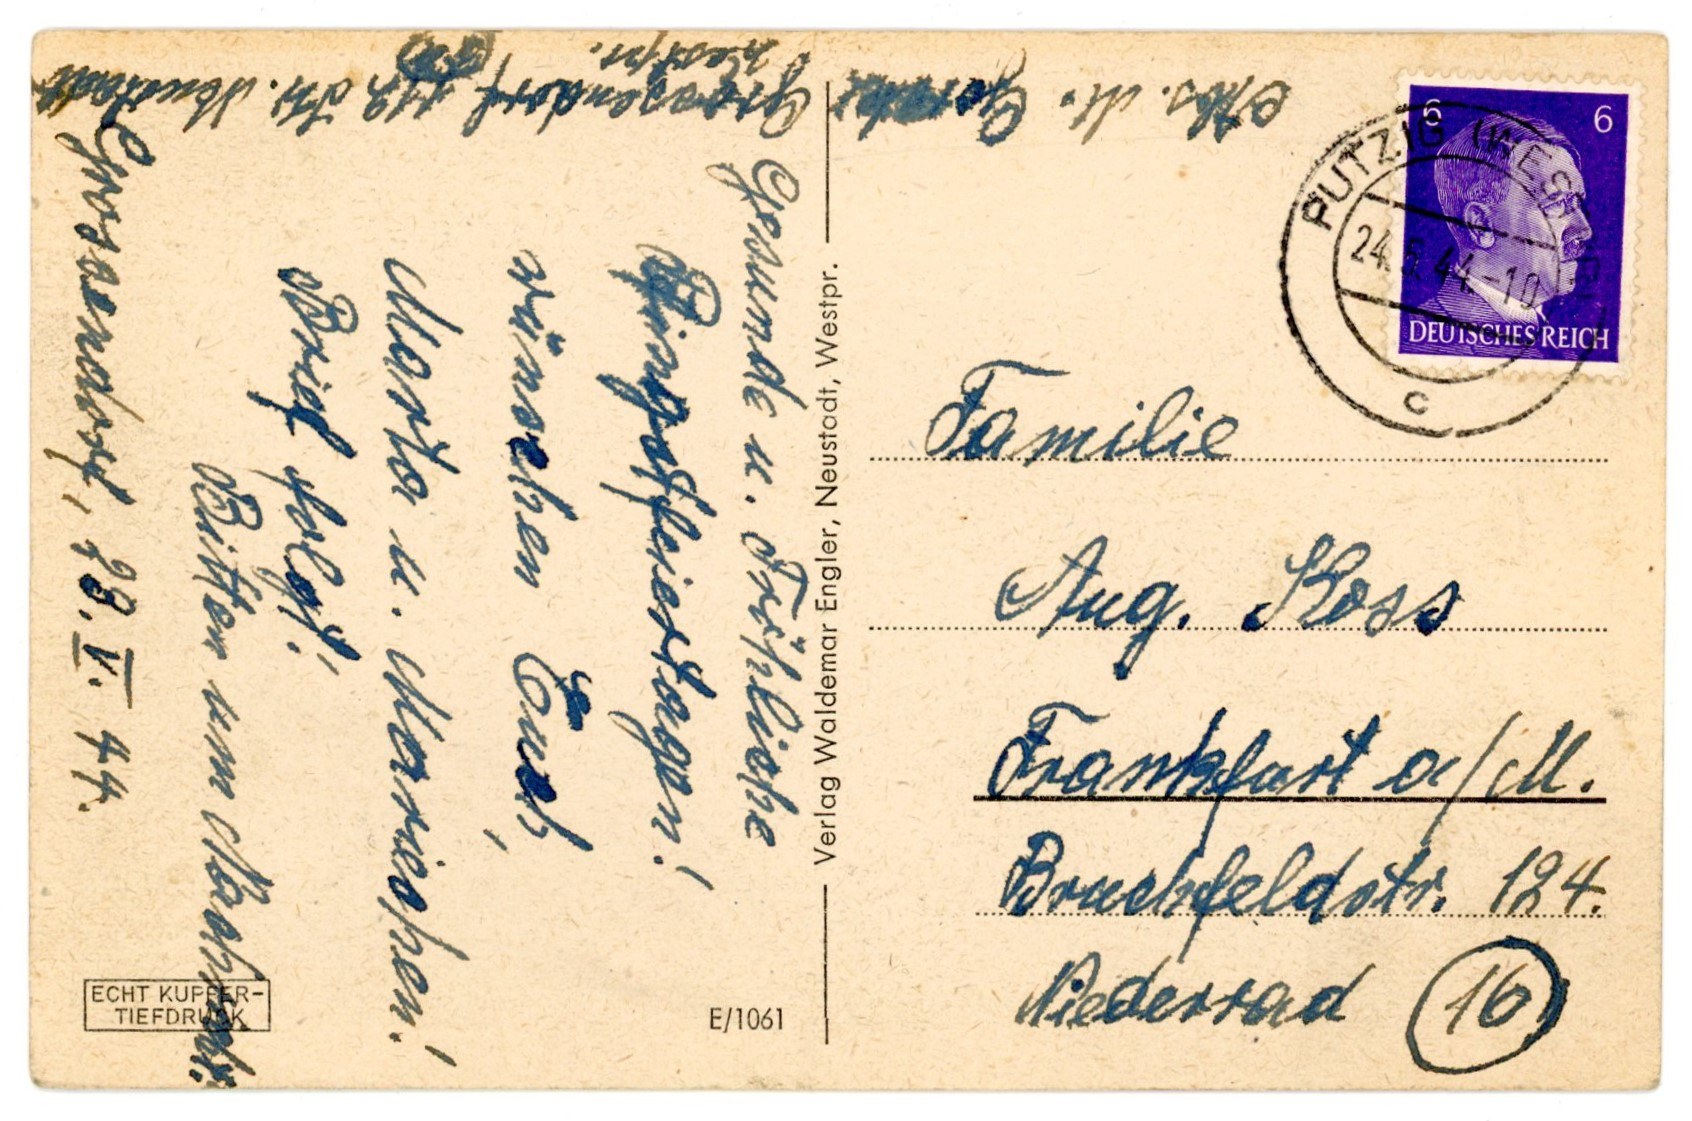 Abs. M.
Grossendorf 112 Kr. Neustadt
Westpr.
Grossendorf, 23. V. 44.
Gesunde u. Fröhliche
Pfingstfeiertagen!
wünschen Euch,
Marta u. Mariechen!
Brief folgt!
Bitten um Nachricht.
Verlag Waldemar Engler, Neustadt, Westpr.
ECHT KUPFER-
TIEFDRUCK
E/1061
6 6
DEUTSCHES REICH
PUTZIG (WESTPR)
24.5.44.-10
c
Familie
Aug. Koss
Frankfurt a/M.
Bruchfeldstr. 124.
Niederrad 16